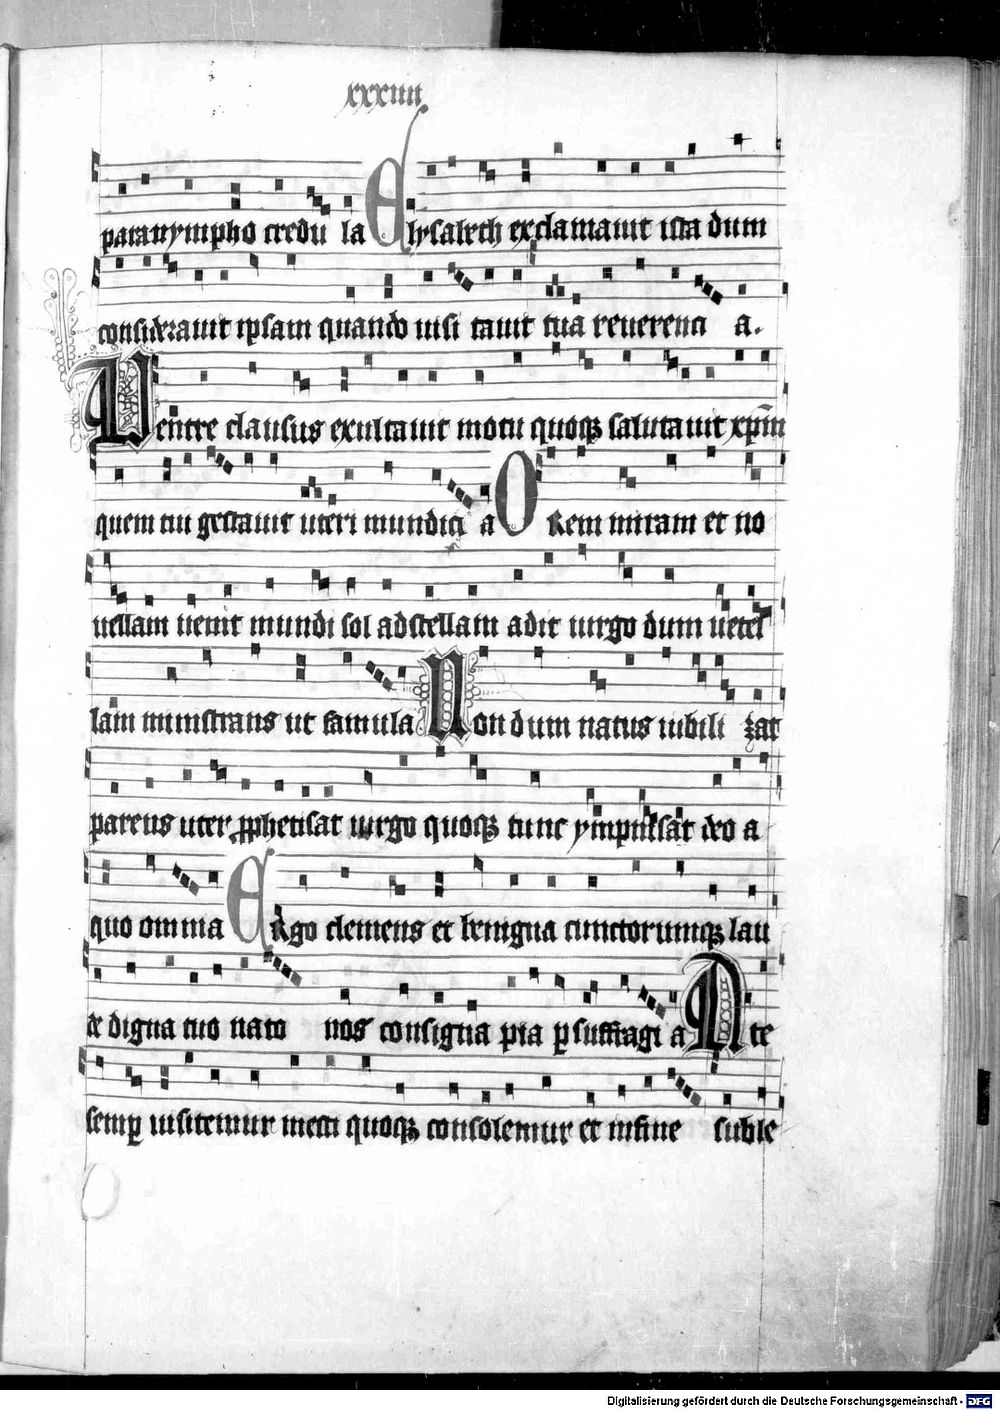 xxxiiii
paranympho credu la Elysabech exclamauit ista dum
considerauit ipsam quando uisi tauit tua reuerenci a.
Uentre clausus exultauit motu quoqꝫ salutauit xp̄m
quem tu gestauit uteri mundici a O Rem miram et no
uellam uenit mundi sol ad stellam adit uirgo dum uetel
lam ministrans ut famula Non dum natus iubili zat
parens uter ꝓphetisat uirgo quoqꝫ tunc ympnisat deo a
quo omnia ERgo clemens et benigna cunctorumqꝫ lau
de digna tuo nato nos consigna pia ꝑ suffragi a A te
semꝑ uisitemur mecu quoqꝫ consolemur et in fine suble
Digitalisierung gefördert durch die Deutsche Forschungsgemeinschaft - DFG